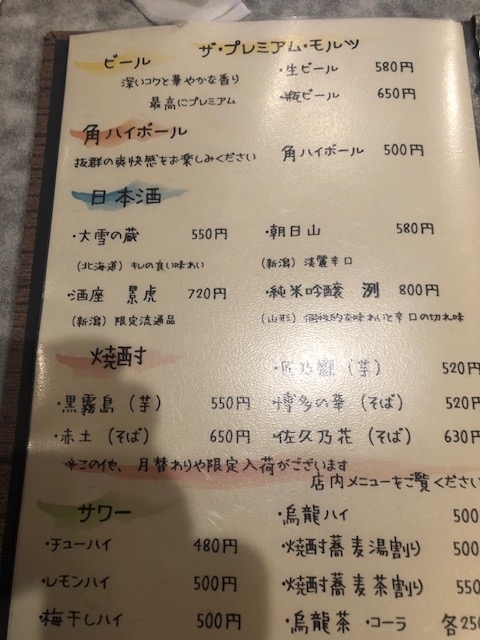 ビール ザ・プレミアム・モルツ
深いコクと華やかな香り ・生ビール 580円
最高にプレミアム ・瓶ビール 650円
角ハイボール
抜群の爽快感をお楽しみください 角ハイボール 500円
日本酒
・大雪の蔵 550円 ・朝日山 580円
(北海道) キレの良い味わい (新潟) 淡麗辛口
・酒座 景虎 720円 ・純米吟醸 洌 800円
(新潟) 限定流通品 (山形) 個性的な味わいと辛口の切れ味
焼酎 (芋) 520円
・黒霧島 (芋) 550円 ・博多の華 (そば) 520円
・赤土 (そば) 650円 ・佐久乃花 (そば) 630円
※この他、月替わりや限定入荷がございます
店内メニューをご覧くださ
サワー ・烏龍ハイ 500
・チューハイ 480円 ・焼酎蕎麦湯割り 500
・レモンハイ 500円 ・焼酎蕎麦茶割り 550
・梅干しハイ 500円 ・烏龍茶 ・コーラ 各250